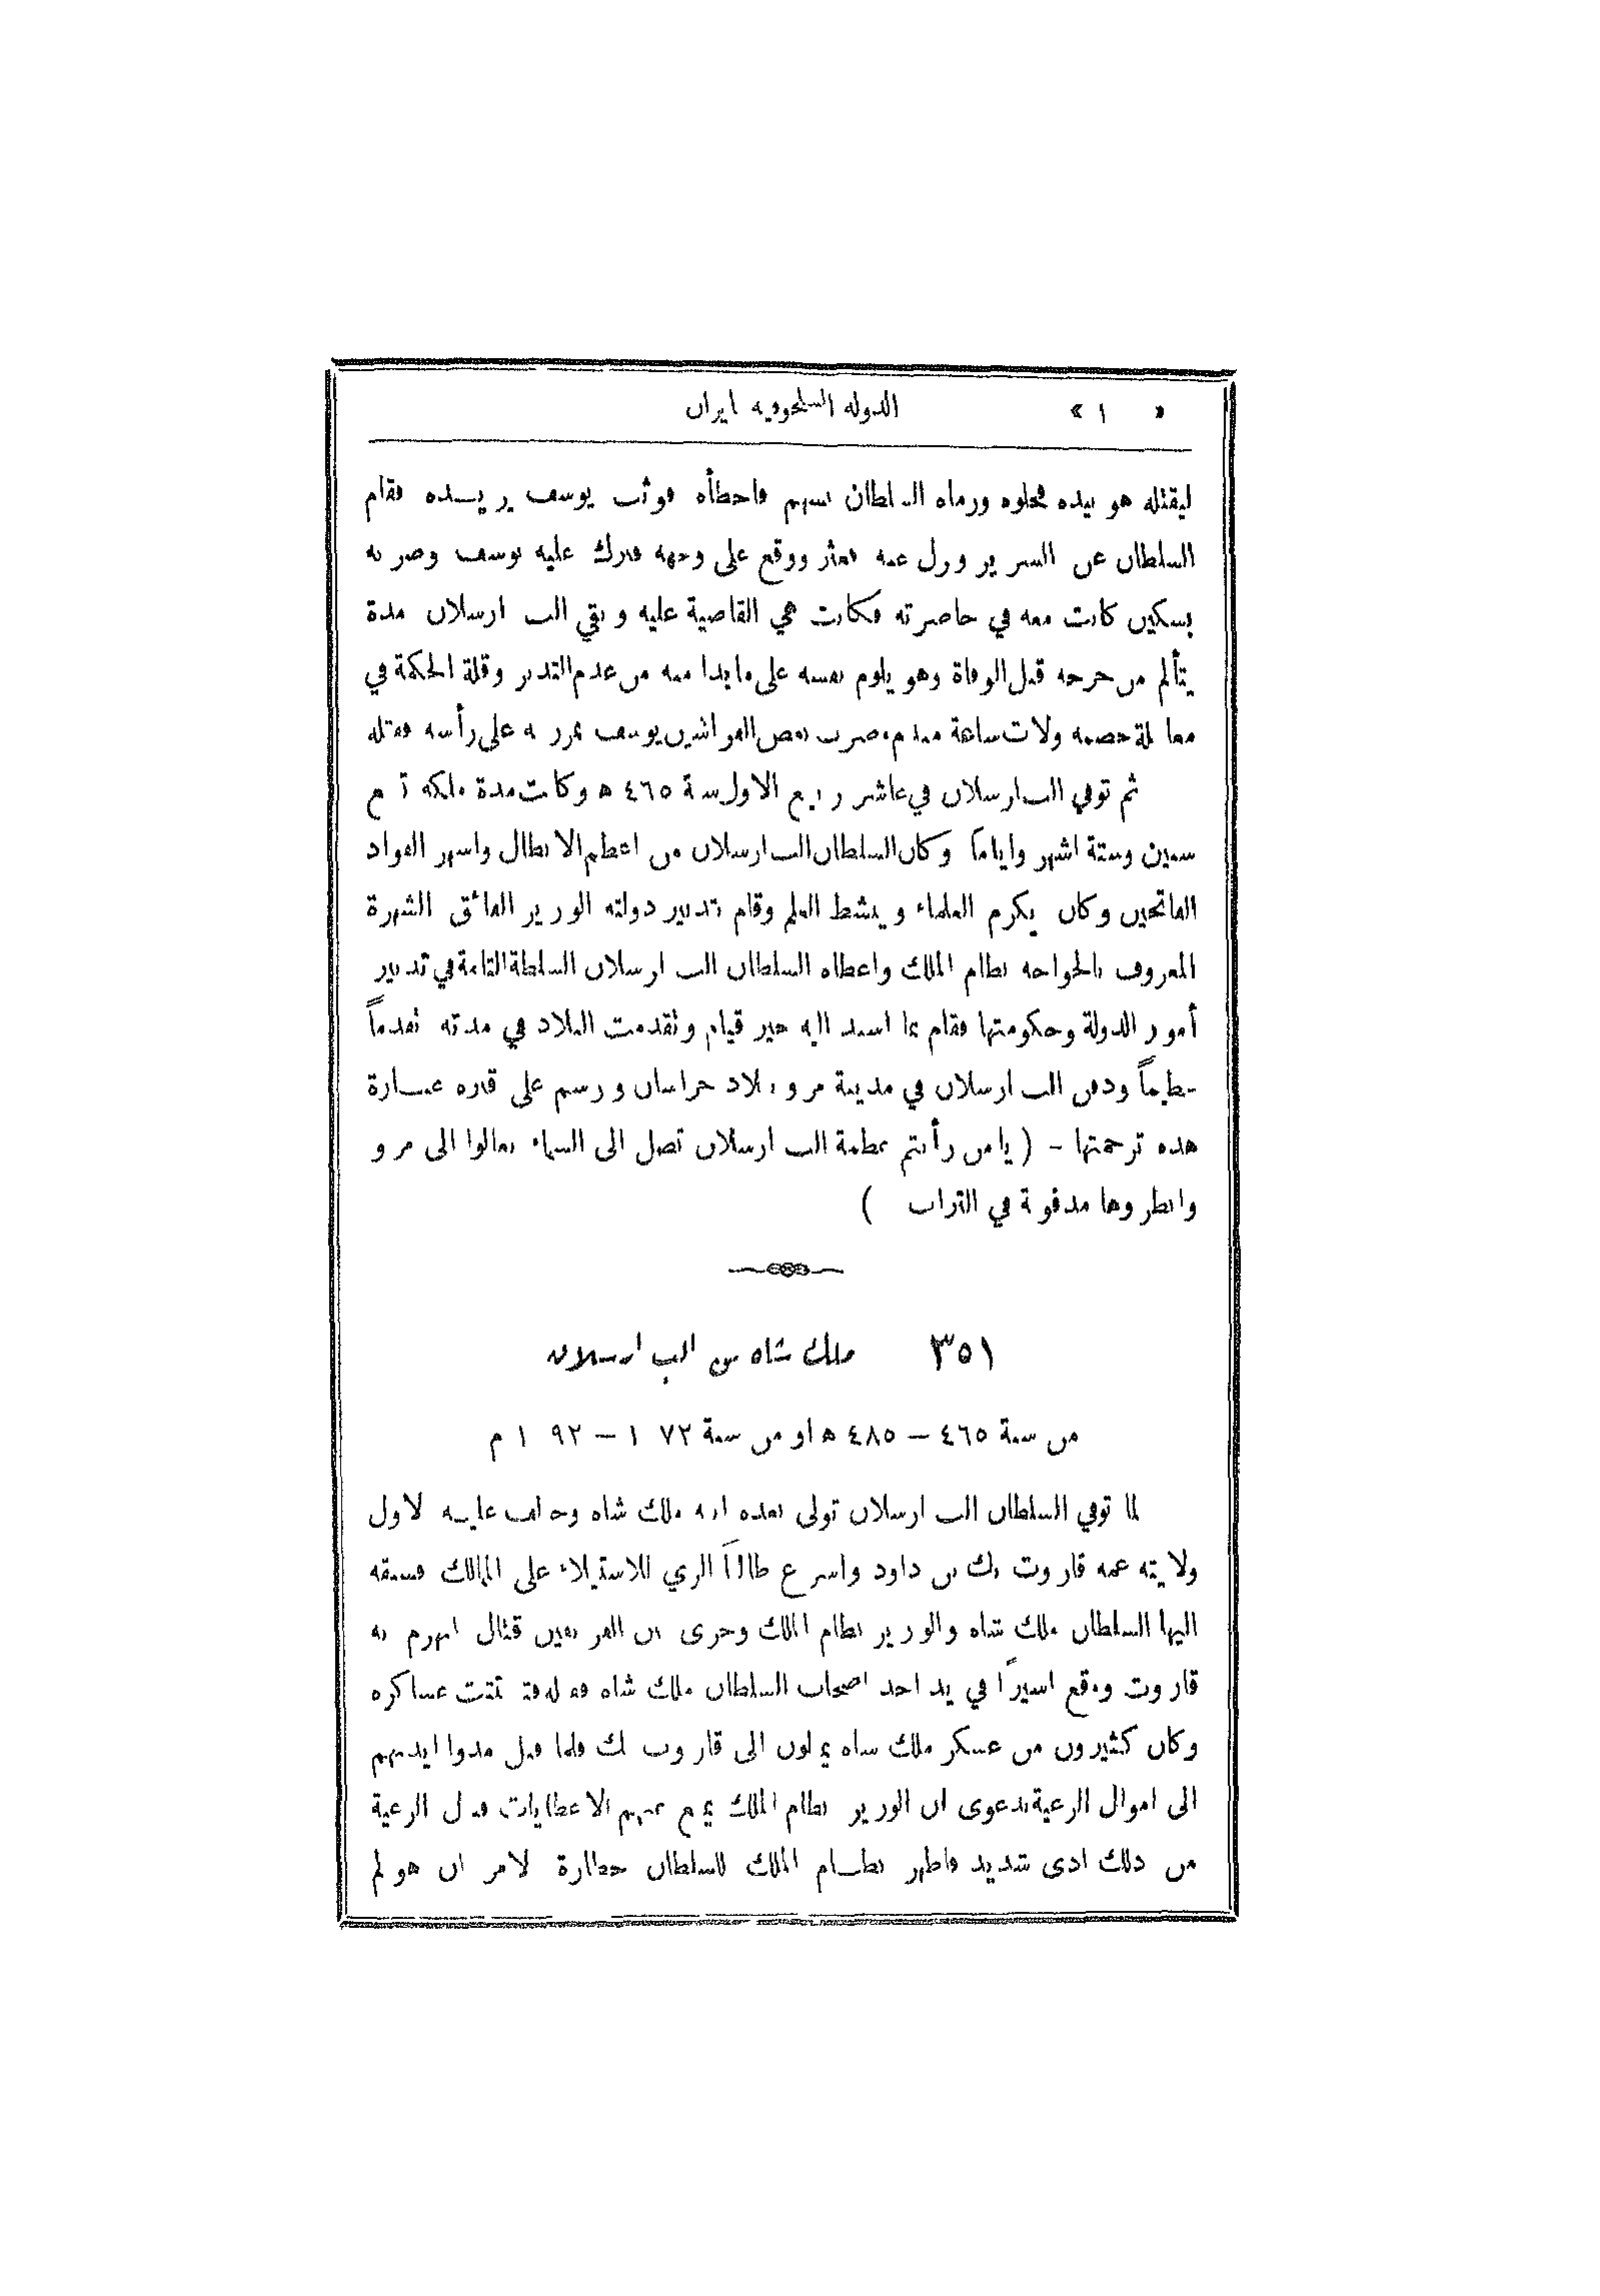 « ١ » الدولة السلجوقية ايران
ليقتله هو بيده فخلوه ورماه السلطان بسهم فاخطأه فوثب يوسف يريـــده فقام
السلطان عن السرير ونزل عنه فعثر ووقع على وجهه فبرك عليه يوسف وضربه
بسكين كانت معه في خاصرته فكانت هي القاضية عليه وبقي الب ارسلان مدة
يتألم من جرحه قبل الوفاة وهو يلوم نفسه على ما بدا منه من عدم التدبر وقلة الحكمة في
معاملة خصمه ولات ساعة مندم فضرب بعض الفراشين يوسف بمرزبة على رأسه فقتله
ثم توفي الب ارسلان في عاشر ربيع الاول سنة ٤٦٥ ه وكانت مدة ملكه تسع
سنين وستة اشهر واياماً وكان السلطان الب ارسلان من اعظم الابطال واشهر القواد
الفاتحين وكان يكرم العلماء وينشط العلم وقام بتدبير دولته الوزير الفائق الشهرة
المعروف بالخواجه نظام الملك واعطاه السلطان الب ارسلان السلطة التامة في تدبير
أمور الدولة وحكومتها فقام بما اسند اليه خير قيام وتقدمت البلاد في مدته تقدماً
عظيماً ودفن الب ارسلان في مدينة مرو ببلاد خراسان ورسم على قبره عبـــارة
هذه ترجمتها – ( يا من رأيتم عظمة الب ارسلان تصل الى السماء تعالوا الى مرو
وانظروها مدفونة في التراب )
٣٥١ ملك شاه بن الب ارسلان
من سنة ٤٦٥ – ٤٨٥ ه او من سنة ٧٢ ١ – ٩٢ ١ م
لما توفي السلطان الب ارسلان تولى بعده ابنه ملك شاه وخالف عليه لاول
ولايته عمه قاروت بك بن داود واسرع طالباً الري للاستيلاء على الممالك فسبقه
اليها السلطان ملك شاه والوزير نظام الملك وجرى بين الفريقين قتال انهزم به
قاروت ووقع اسيرًا في يد احد اصحاب السلطان ملك شاه فقتله فتشتتت عساكره
وكان كثيرون من عسكر ملك شاه يميلون الى قاروت بك فلما قتل مدوا ايديهم
الى اموال الرعية بدعوى ان الوزير نظام الملك يمنع عنهم الاعطايات فنال الرعية
من ذلك اذى شديد فاظهر نظـــام الملك للسلطان خطارة لامر ان هو لم